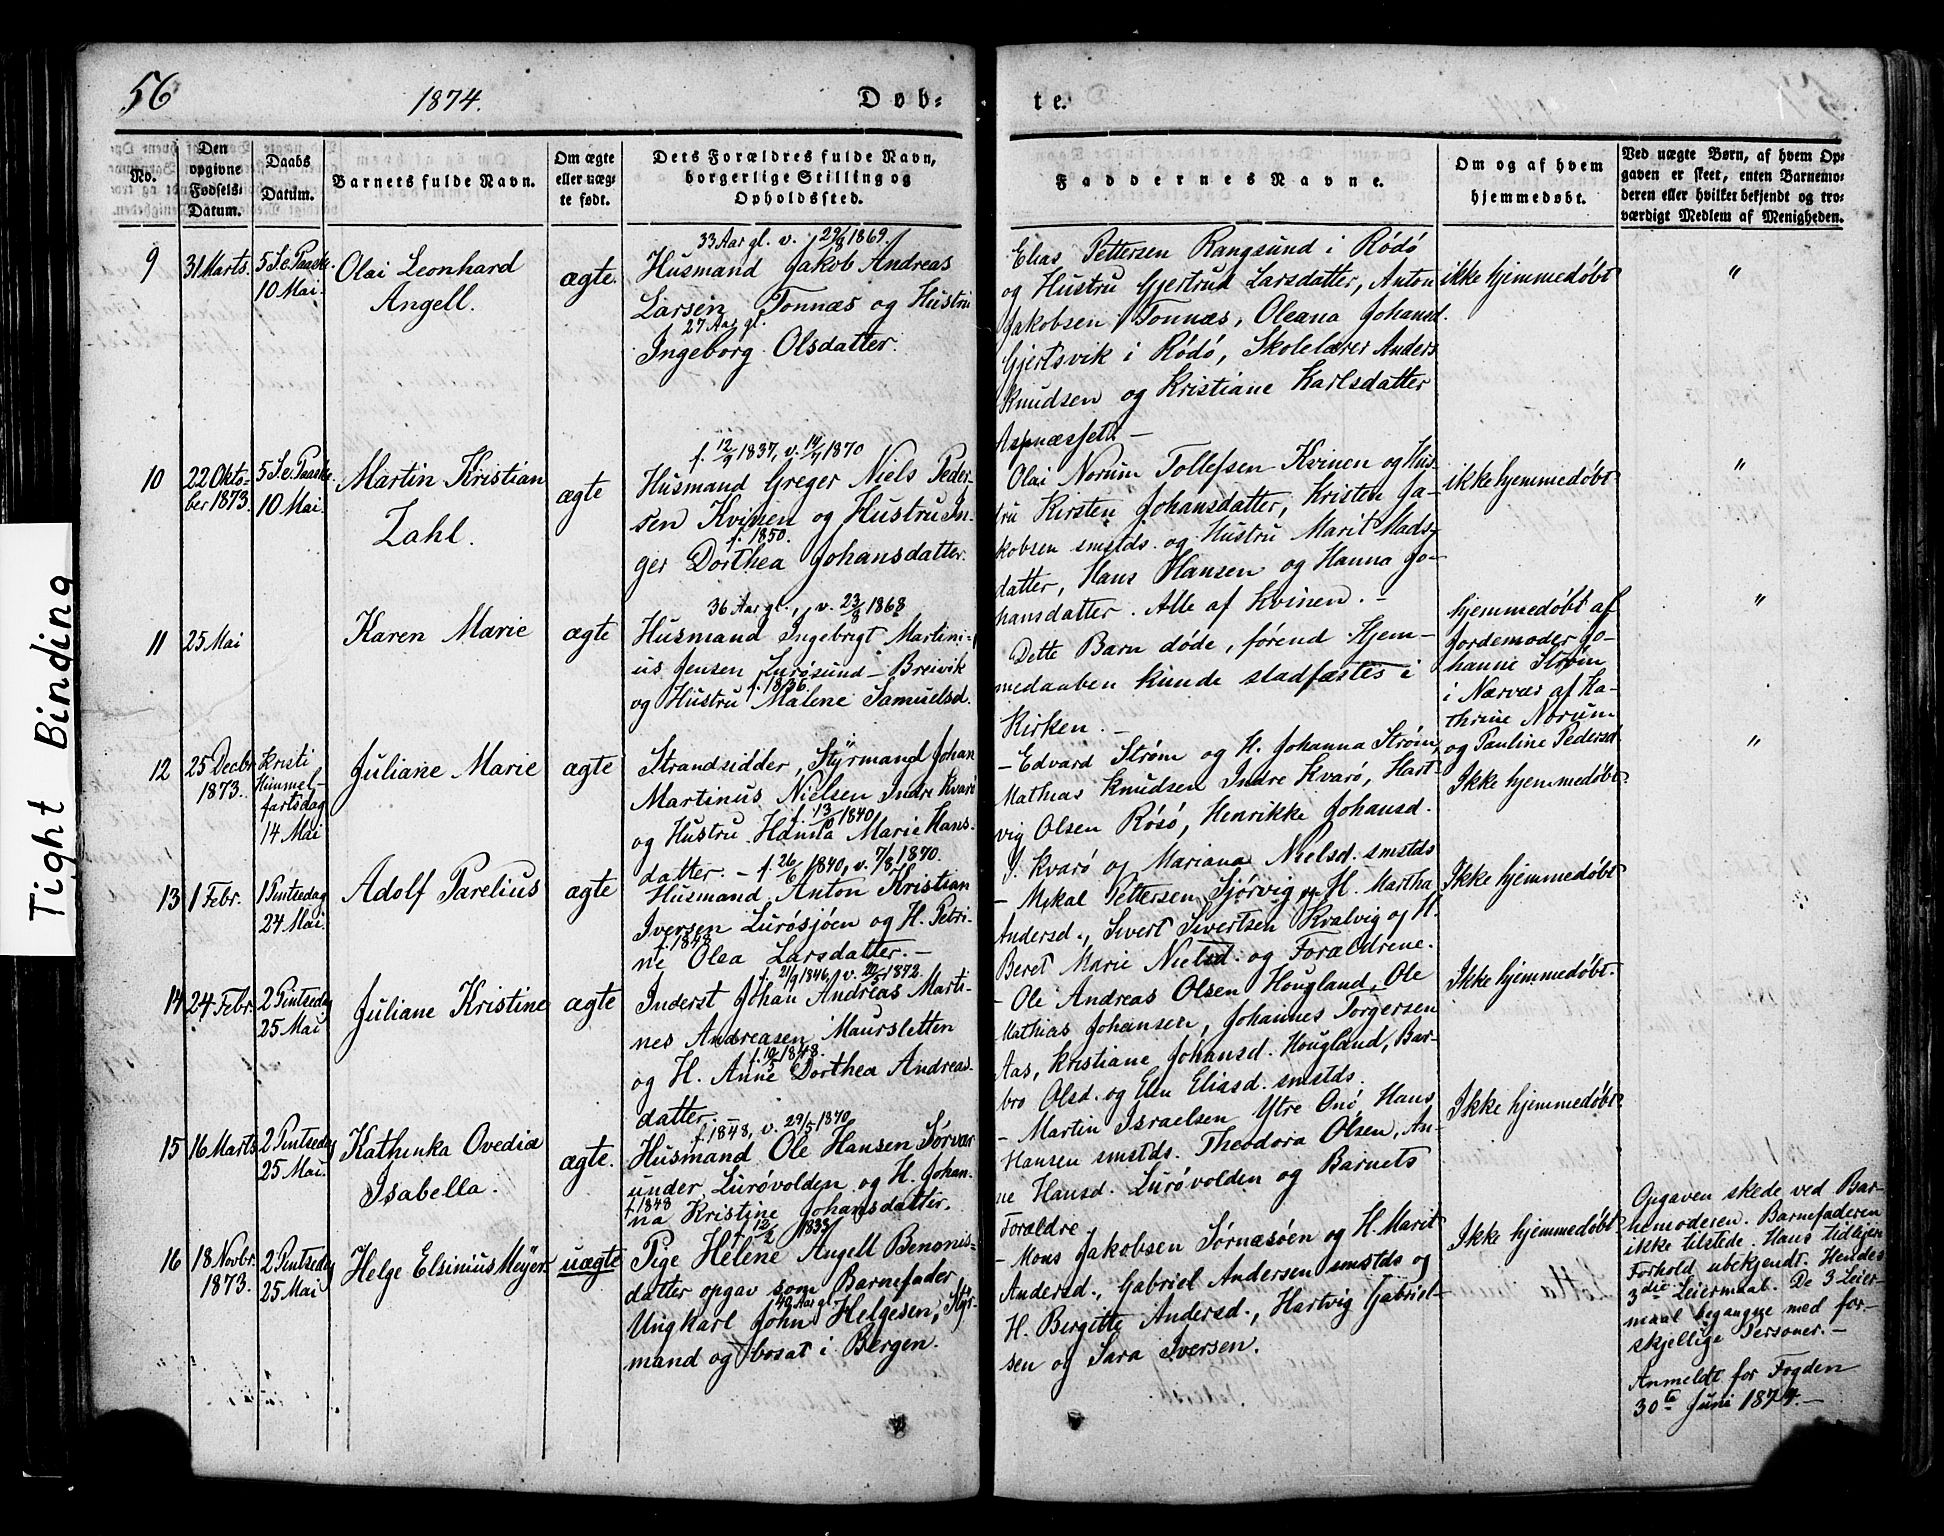 Tight Binding
56
1874.
Døb-
te.
No.
Den
opgivne
Fødsels-
Datum.
Daabs
Datum.
Barnets fulde Navn.
Om ægte
eller uæg-
te født.
Dets Forældres fulde Navn,
borgerlige Stilling og
Opholdssted.
Faddernes Navne.
Om og af hvem
hjemmedøbt.
Ved uægte Børn, af hvem Op-
gaven er skeet, enten Barnemo-
deren eller hvilket bekjendt og tro-
værdigt Medlem af Menigheden.
9
31 Marts.
5 S. e. Paaske.
10 Mai.
Olai Leonhard
Angell.
ægte.
33 Aar gl. v. 29/8 1869.
Husmand Jakob Andreas
Larsen Tonnæs og Hustru
27 Aar gl.
Ingeborg Olsdatter.
Elias Pettersen Rangsund i Rødø
og Hustru Gjertrud Larsdatter, Anton
Jakobsen Tonnæs, Oleana Johansd.
Gjertsvik i Rødø, Skolelærer Anders
Knudsen og Kristiane Karlsdatter
Aspnæsfeth –
ikke hjemmedøbt
"
10
22 Okto-
ber 1873.
5 S. e. Paaske.
10 Mai.
Martin Kristian
Zahl.
ægte
f. 12/9 1837, v. 14/7 1870
Husmand Greger Niels Peder-
sen Kvinen og Hustru In-
f. 1850.
ger Dorthea Johansdatter.
Olai Norum Tollefsen Kvinen og Hus-
tru Kirsten Johansdatter, Kristen Ja-
kobsen smstds. og Hustru Marit Mads-
datter, Hans Hansen og Hanna Jo-
hansdatter. Alle af Kvinen. –
ikke hjemmedøbt
"
11
25 Mai
Karen Marie
ægte
36 Aar gl., v. 23/8 1868
Husmand Ingebrigt Martini-
us Jensen Lurøsund – Breivik
f. 1836.
og Hustru Malene Samuelsd.
Dette Barn døde, førend Hjem-
medaaben kunde stadfæstes i
Kirken. –
hjemmedøbt af
Jordemoder Jo-
hanne Strøm
i Nærvær af Ka-
thrine Norum
og Pauline Pedersd.
"
12
25 Decbr.
1873.
Kristi
Himmel-
fartsdag
14 Mai
Juliane Marie
ægte
Strandsidder, Styrmand Johan
Martinus Nielsen Indre Kvarø
f. 13/10 1840
og Hustru Hanna Marie Hans-
datter. –
– Edvard Strøm og H. Johanna Strøm,
Mathias Knudsen Indre Kvarø, Hart-
vig Olsen Røsø, Henrikke Johansd.
I. Kvarø og Mariana Nielsd. smstds
Ikke hjemmedøbt.
"
13
1 Febr.
1 Pintsedag
24 Mai.
Adolf Parelius
ægte
f. 26/6 1840, v. 7/8 1870.
Husmand Anton Kristian
Iversen Lurøsjøen og H. Petri-
f. 1848
ne Olea Larsdatter. –
– Mikal Pettersen Sjørvig og H. Martha
Andersd., Sivert Sivertsen Kvalvig og H.
Beret Marie Nielsd. og Forældrene.
Ikke hjemmedøbt
14
24 Febr.
2 Pintsedag
25 Mai
Juliane Kristine
ægte
f. 21/9 1846, v. 20/5 1872.
Inderst Johan Andreas Marti-
nes Andreasen Maursletten
f. 10/5 1848.
og H. Anne Dorthea Andreas-
datter.
– Ole Andreas Olsen Hougland, Ole
Mathias Johansen, Johannes Torgersen
Aas, Kristiane Johansd. Hougland, Bar-
bro Olsd. og Elen Eliasd. smstds.
Ikke hjemmedøbt.
15
16 Marts
2 Pintsedag
25 Mai.
Kathinka Ovedia
Isabella.
ægte.
f. 1848, v. 29/5 1870
Husmand Ole Hansen Sørvar
under Lurøvolden og H. Johan-
f. 1848
na Kristine Johansdatter.
– Martin Israelsen Ytre Onø, Hans
Hansen smstds. Theodora Olsen, An-
ne Hansd. Lurøvolden og Barnets
Forældre
Ikke hjemmedøbt.
16
18 Novbr.
1873.
2 Pintsedag
25 Mai
Helge Elsinius Meyer
uægte
f. 12/2 1833
Pige Helene Angell Benonis-
datter opgav som Barnefader
40 Aar gl.
Ungkarl John Helgesen, Styr-
mand og bosat i Bergen.
– Mons Jakobsen Sørnæsøen og H. Marit
Andersd., Gabriel Andersen smstds og
H. Bergitte Andersd., Hartvig Gabriel-
sen og Sara Iversen.
Ikke hjemmedøbt.
Opgaven skede ved Bar-
nemoderen. Barnefaderen
ikke tilstede. Hans tidligere
Forhold ubekjendt. Hendes
3die Leiermaal. De 3 Leier-
maal begangne med for-
skjellige Personer. –
Anmeldt for Fogden
30te Juni 1874. –